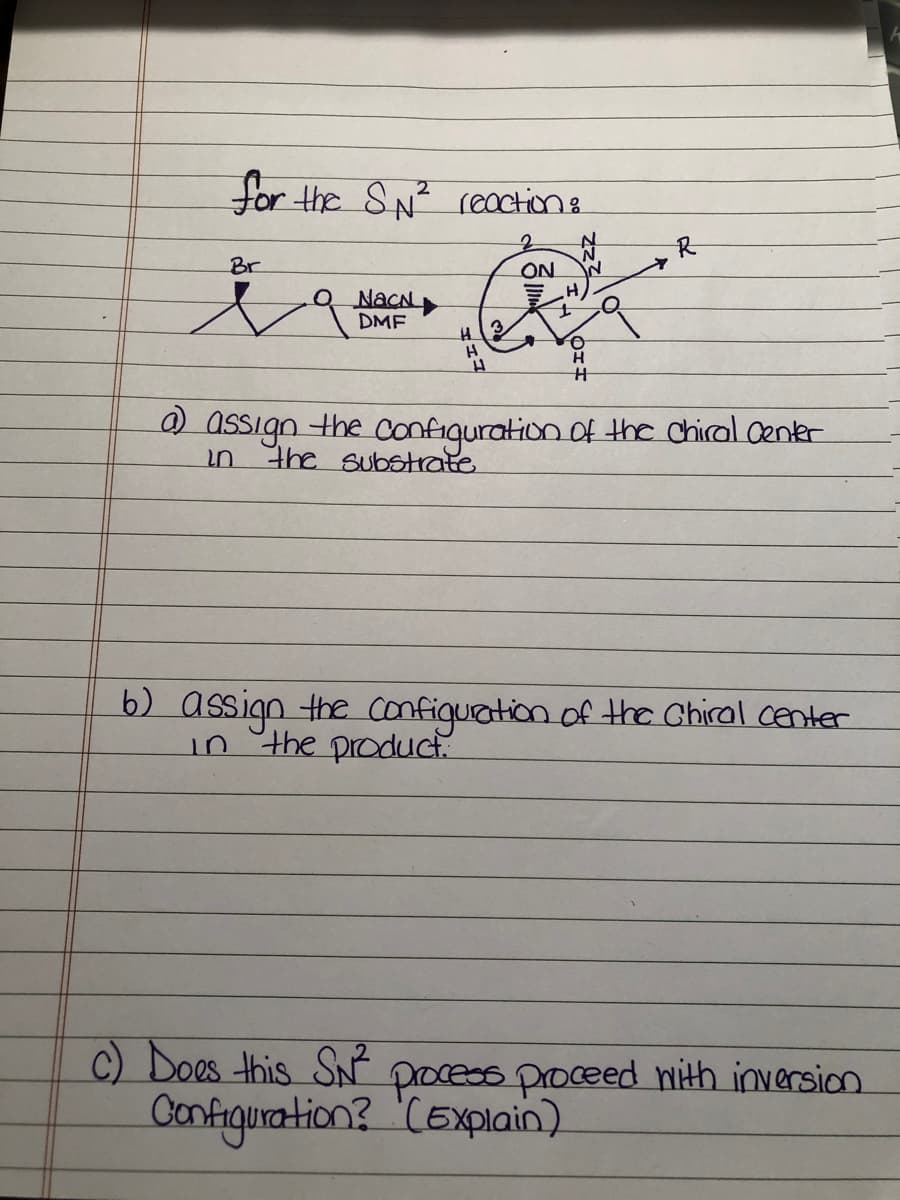 for the SN² reaction:
Br
O NaCN
DMF
2
ON
N
N
N
R
H
1
O
3
H
H
H
O
H
H
a) assign the configuration of the chiral center
in the substrate
b) assign the configuration of the chiral center
in the product.
c) Does this SN² process proceed with inversion
configuration? (Explain)